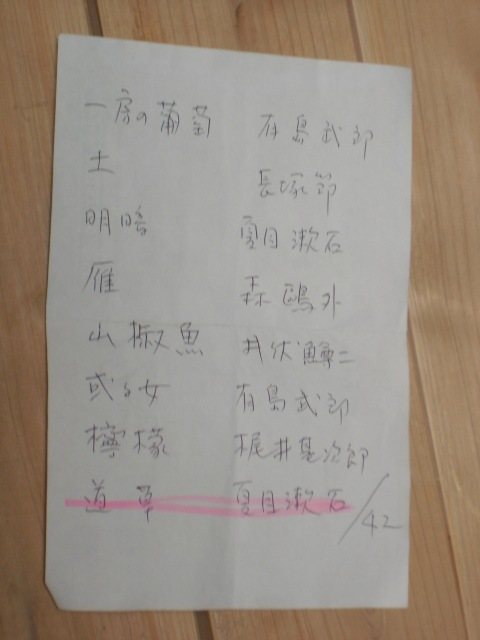 一房の葡萄 有島武郎
土 長塚節
明暗 夏目漱石
雁 森鴎外
山椒魚 井伏鱒二
或る女 有島武郎
檸檬 梶井基次郎
道草 夏目漱石
/42